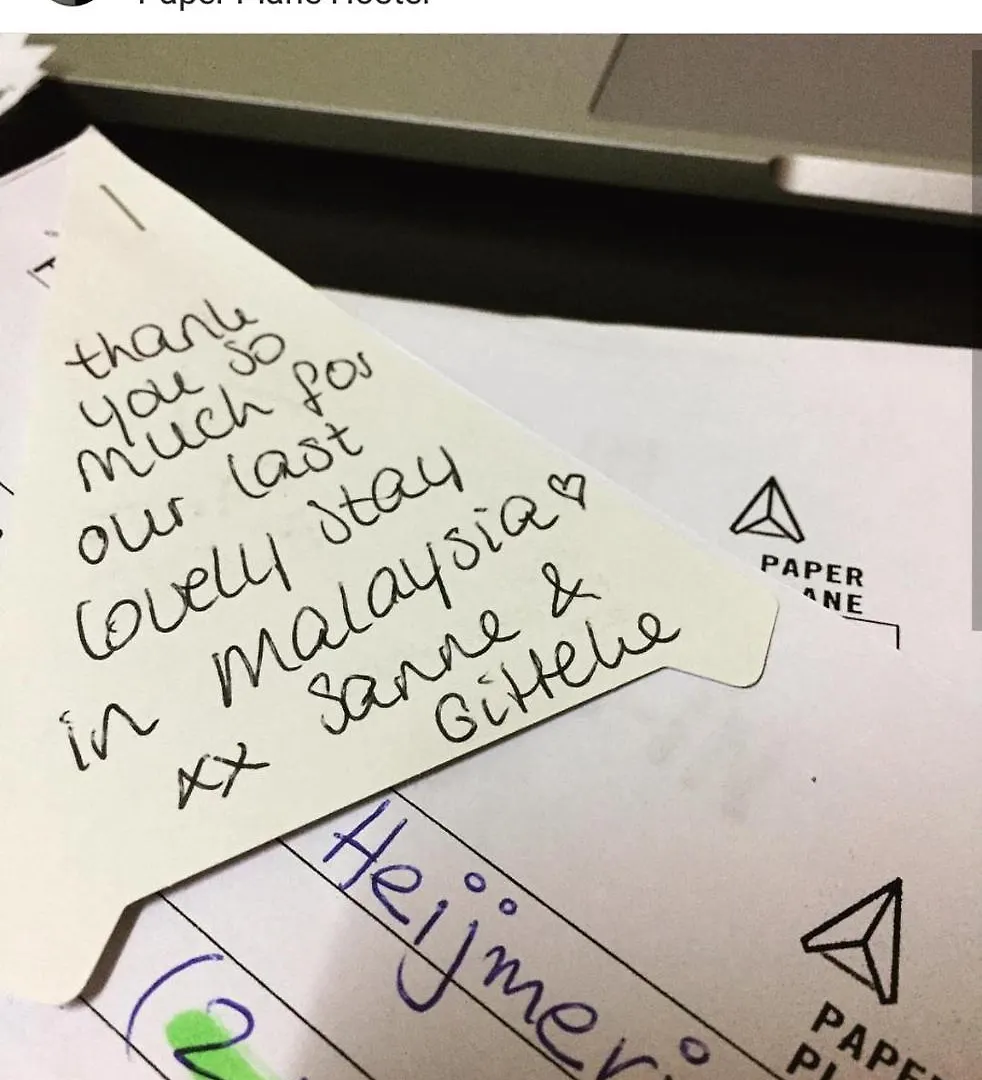 Paper Plane Hostel
thank
you so
much for
our last
lovely stay
in Malaysia
xx Sanne &
Gitteke
PAPER
ANE
Heijmeri
(2
PAPE
PL